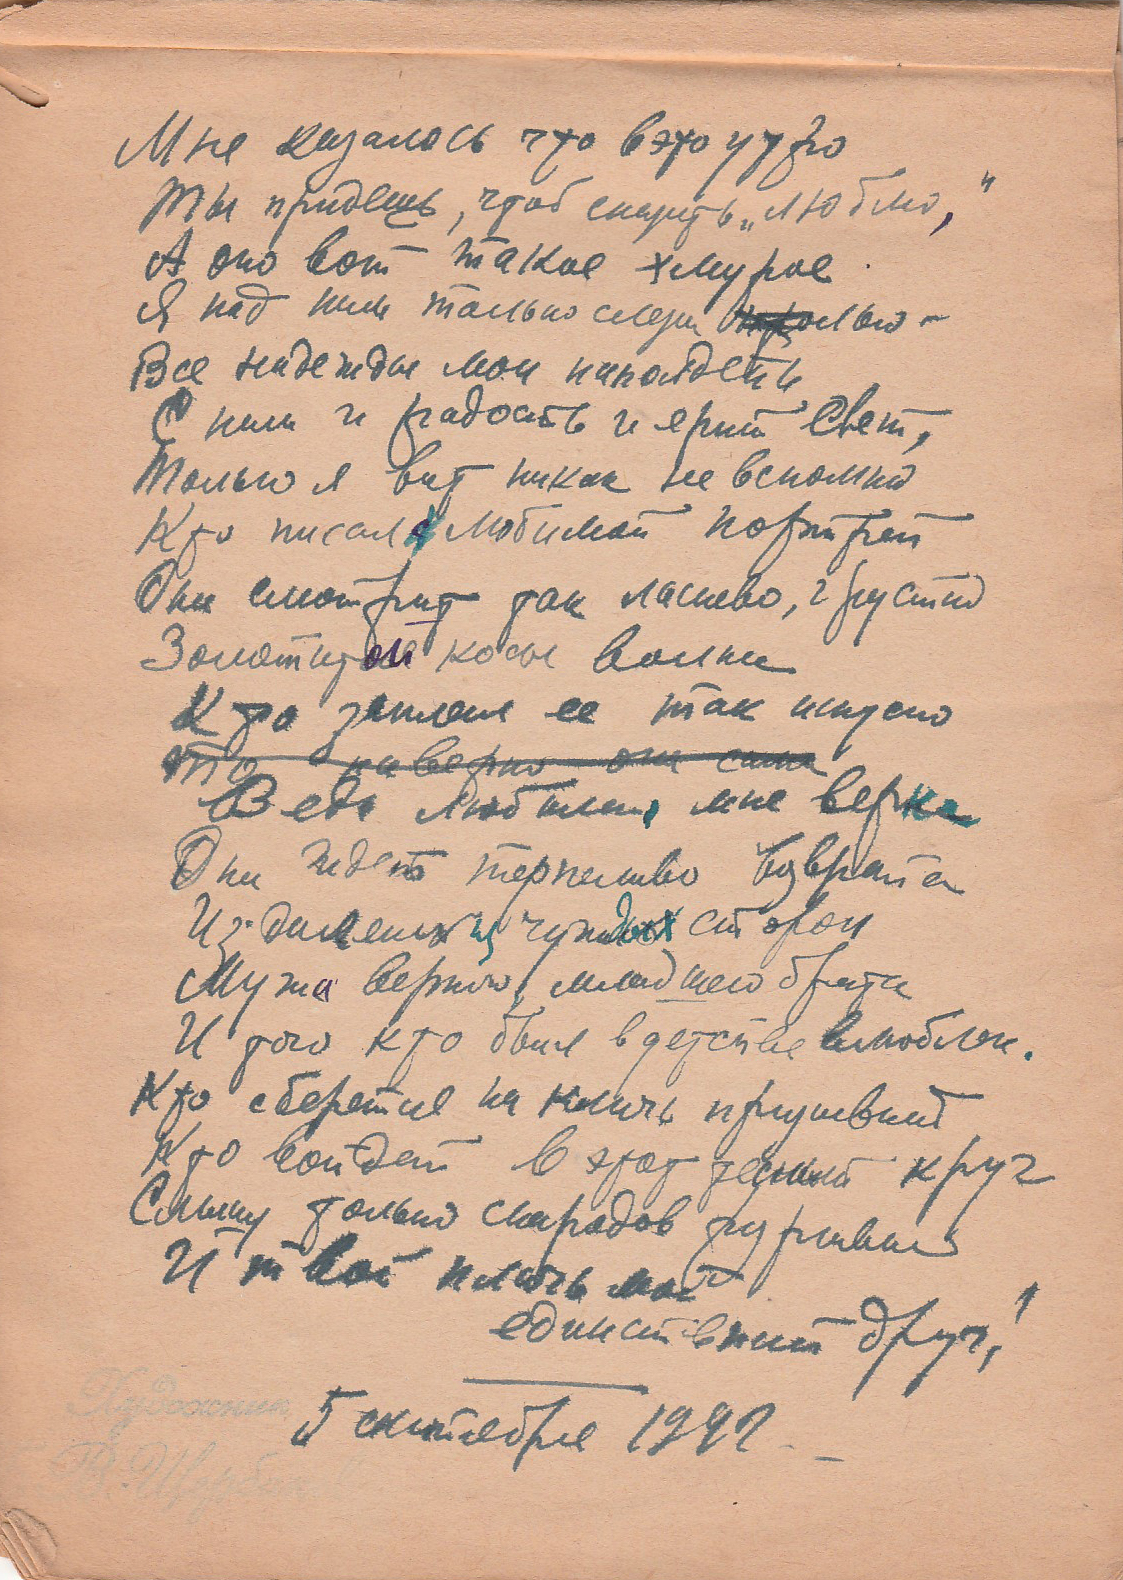 Мне казалось что в это утро
Ты придешь, чтоб сказать „люблю,"
А оно вот такое хмурое
Я над ним только слезы пролью –
Все надежды мои
С ним и радость и яркий свет,
Только я вот никак не вспомню
Кто писал любимой портрет
Она смотрит так ласково, грустно
Золотитой косы волна
Кто заплел ее так искусно
То наверно она сама
Ведь любила, мне верна
Она ждет терпеливо возврата
Из далеких чуждых сторон
Мужа верного, младшего брата
И того кто был в детстве влюблен.
Кто сберется на клич призывный
Кто войдет в этот тесный круг
Слышу только снарядов разрывы
И твой плачь мой
единственный друг,!
5 сентября 1942
Художник
В. Щерби